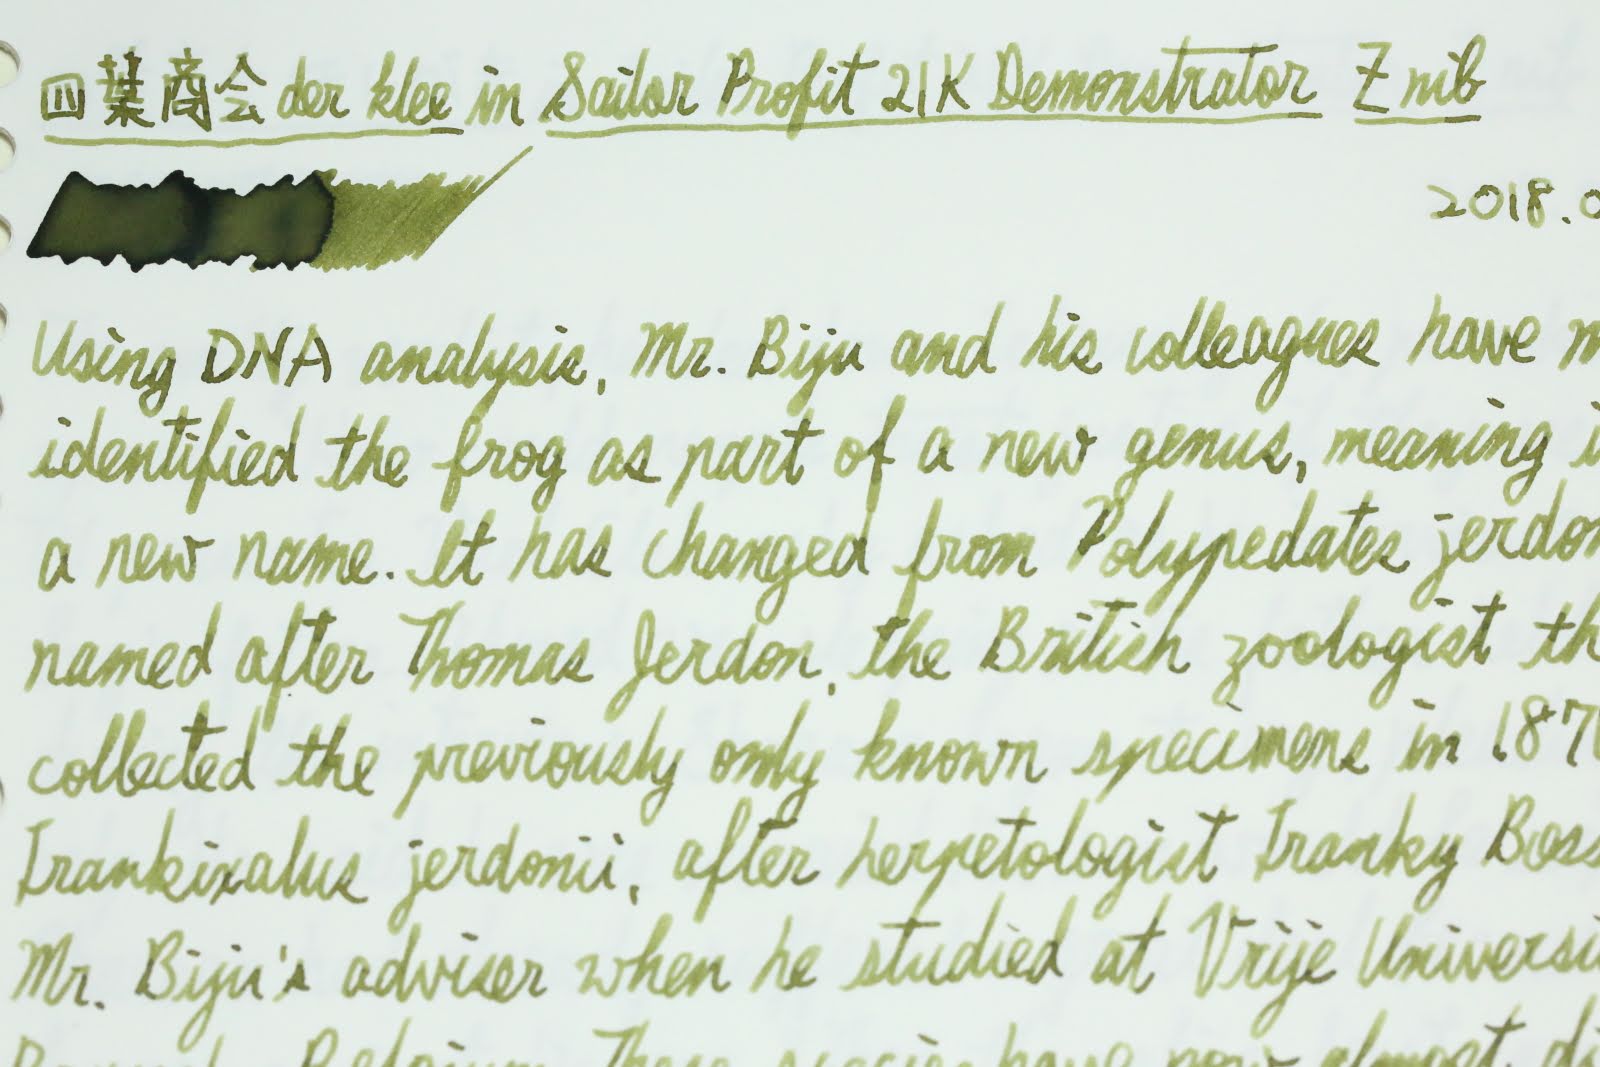 四葉商会 der klee in Sailor Profit 21K Demonstrator Z nib
2018.0
Using DNA analysis, Mr. Biju and his colleagues have
identified the frog as part of a new genus, meaning
a new name. It has changed from Polypedates jerdon
named after Thomas Jerdon, the British zoologist th
collected the previously only known specimens in 187
Frankixalus jerdonii, after herpetologist Franky Boss
Mr. Biju's adviser when he studied at Vrije Universi
Belgium. These species have now almost di